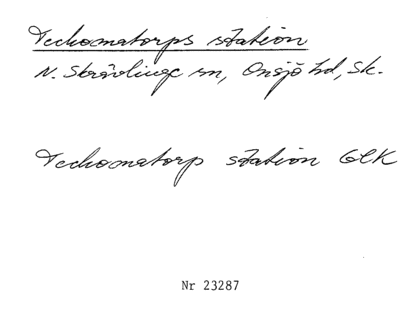 Teckomatorps station
N. Skrävlinge sn, Onsjö hd, Sk.
Teckomatorp station GEK
Nr 23287